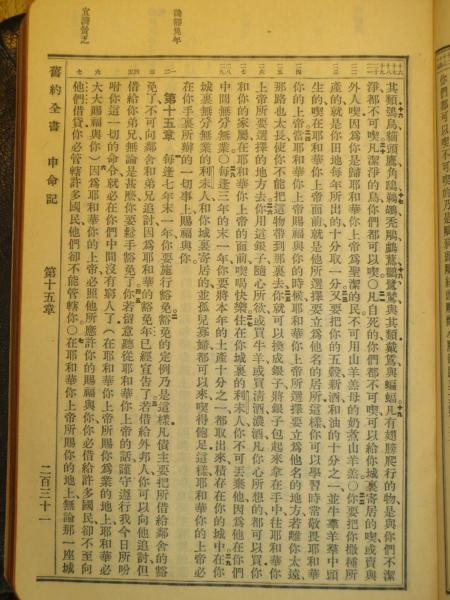 其類鴟鳥貓頭鷹角鴟鵜鶘禿鵰鸕鶿鸛鷺鷥與其類戴鵀與蝙蝠凡有翅膀爬行的物是與你們不潔
淨都不可喫凡潔淨的鳥你們都可以喫○凡自死的你們都不可喫可以給你城裏寄居的喫或賣與
外人喫因為你是歸耶和華你上帝為聖潔的民不可用山羊羔母的奶煮山羊羔○你要把你撒種所
產的就是你田地每年所出的十分取一分又要把你的五穀新酒和油的十分之一並牛羣羊羣中頭
生的喫在耶和華你上帝面前就是他所選擇要立為他名的居所這樣你可以學習時常敬畏耶和華
你的上帝當耶和華你上帝賜福與你的時候耶和華你上帝所選擇要立為他名的地方若離你太遠
那路也太長使你不能把這物帶到那裏去你就可以換成銀子將銀子包起來拿在手中往耶和華你
上帝所要選擇的地方去你用這銀子隨心所欲或買牛羊或買清酒濃酒凡你心所想的都可以買你
和你的家屬在耶和華你上帝的面前喫喝快樂住在你城裏的利未人你不可丟棄他因為他在你們
中間無分無業○每逢三年的末一年你要將本年的土產十分之一都取出來積存在你的城中在你
城裏無分無業的利未人和你城裏寄居的並孤兒寡婦都可以來喫得飽足這樣耶和華你的上帝必
在你手裏所辦的一切事上賜福與你
第十五章 每逢七年末一年你要施行豁免豁免的定例乃是這樣凡債主要把所借給鄰舍的豁
免了不可向鄰舍和弟兄追討因為耶和華的豁免年已經宣告了若借給外邦人你可以向他追討但
借給你弟兄無論是甚麼你要鬆手豁免了你若留意聽從耶和華你上帝的話謹守遵行我今日所吩
咐你這一切的命令就必在你們中間沒有窮人了（在耶和華你上帝所賜你為業的地上耶和華必
大大賜福與你）因為耶和華你的上帝必照他所應許你的賜福與你你必借給許多國民卻不至向
他們借貸你必管轄許多國民他們卻不能管轄你○在耶和華你上帝所賜你的地上無論那一座城
舊約全書 申命記 第十五章 二百三十一